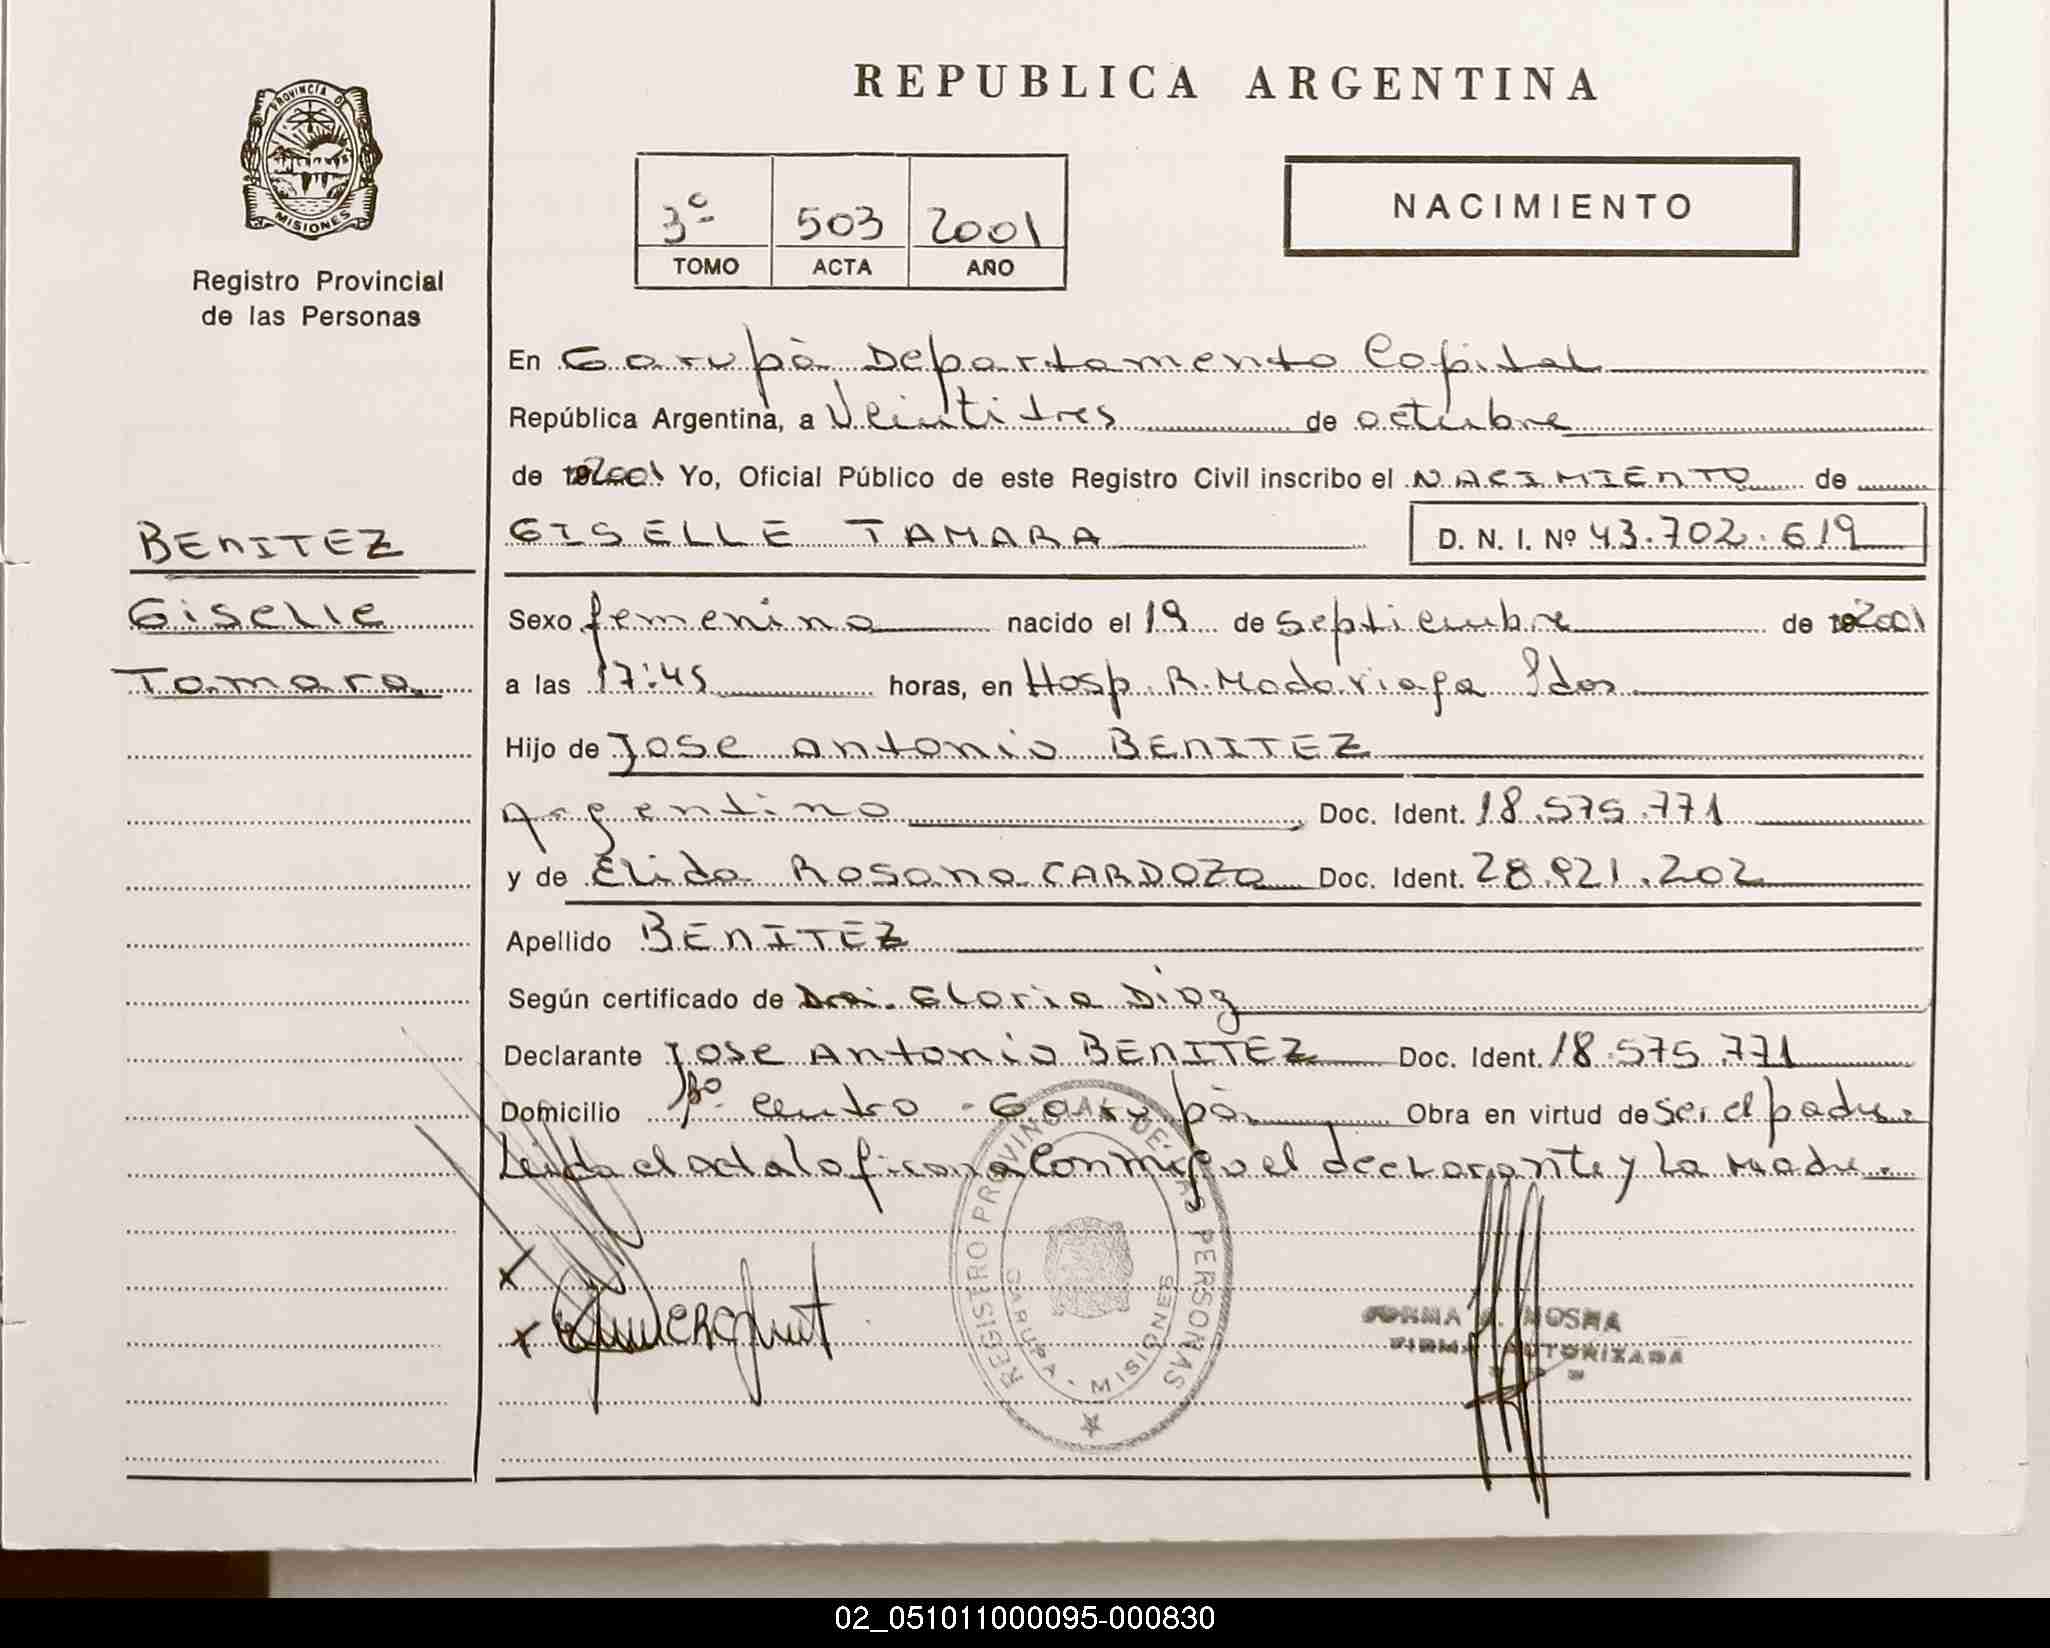 REPUBLICA ARGENTINA
PROVINCIA DE
MISIONES
Registro Provincial
de las Personas
3º 503 2001
TOMO ACTA AÑO
NACIMIENTO
En Garupà Departamento Capital
República Argentina, a Veintitres de octubre
de 2001 Yo, Oficial Público de este Registro Civil inscribo el NACIMIENTO de
BENITEZ
Giselle
Tamara
GISELLE TAMARA D. N. I. Nº 43.702.619
Sexo femenino nacido el 19 de septiembre de 2001
a las 17:45 horas, en Hosp. R. Madariaga Pdas
Hijo de Jose Antonio BENITEZ
Argentino Doc. Ident. 18.575.771
y de Elida Rosana CARDOZO Doc. Ident. 28.821.202
Apellido BENITEZ
Según certificado de Dra. Gloria Diaz
Declarante Jose Antonio BENITEZ Doc. Ident. 18.575.771
Domicilio Bº Centro - Garupà Obra en virtud de ser el padre.
Leida el acta la firma conmigo el declarante y la Madre.
REGISTRO PROVINCIAL DE LAS PERSONAS
GARUPA - MISIONES
NORMA MOSNA
FIRMA AUTORIZADA
02_051011000095-000830